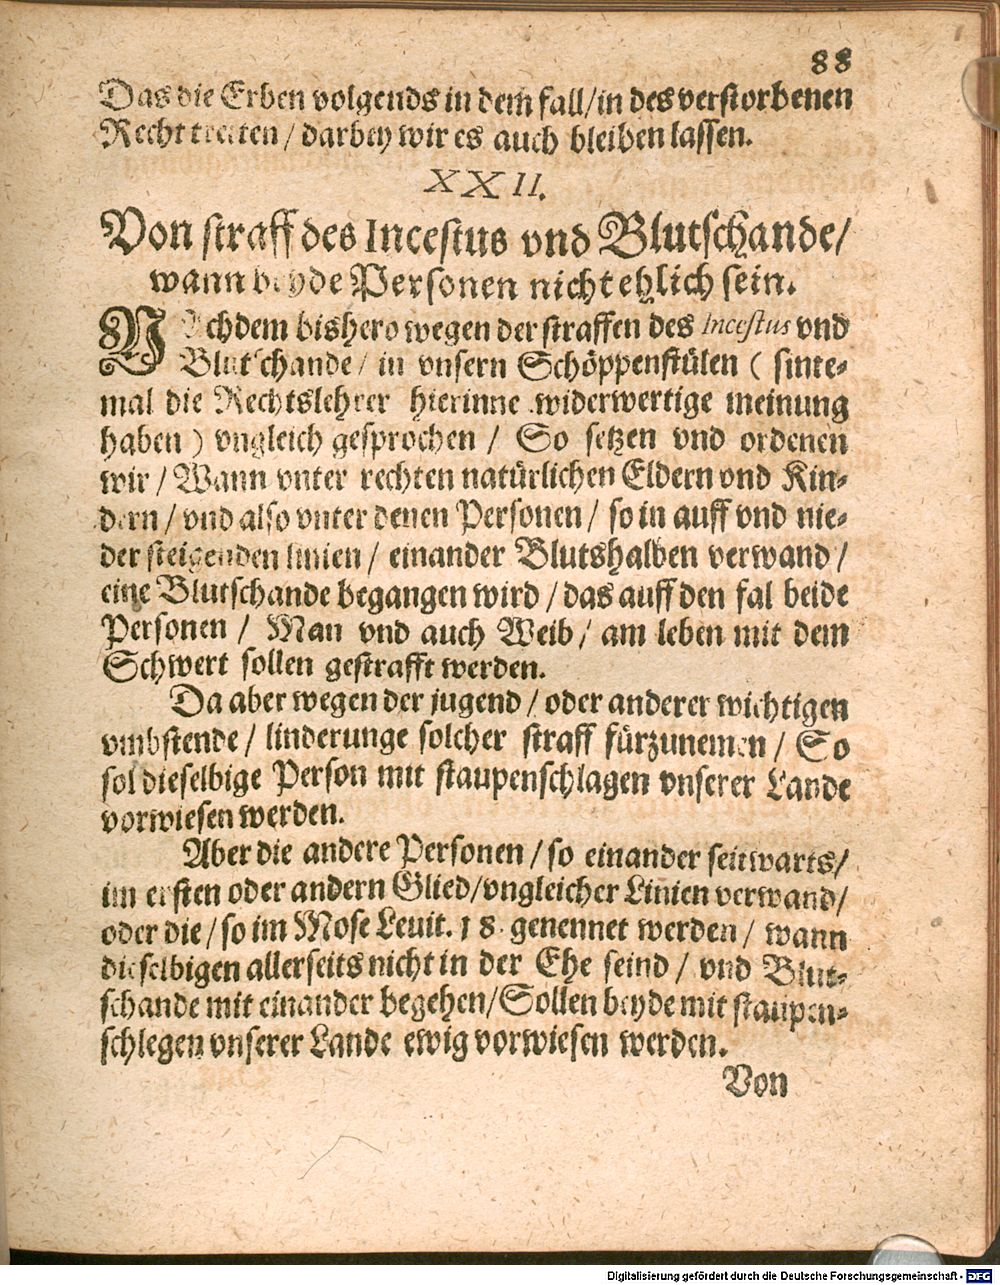 88
Das die Erben volgends in dem fall/in des verstorbenen
Recht tretten / darbey wir es auch bleiben lassen.
XXII.
Von straff des Incestus vnd Blutschande/
wann beyde Personen nicht ehlich sein.
NAchdem bishero wegen der straffen des Incestus vnd
Blutschande / in vnsern Schöppenstülen ( sinte-
mal die Rechtslehrer hierinne widerwertige meinung
haben ) vngleich gesprochen / So setzen vnd ordenen
wir / Wann vnter rechten natürlichen Eldern vnd Kin-
dern / vnd also vnter denen Personen / so in auff vnd nie-
der steigenden linien / einander Blutshalben verwand /
eine Blutschande begangen wird / das auff den fal beide
Personen / Man vnd auch Weib / am leben mit dem
Schwert sollen gestrafft werden.
Da aber wegen der jugend / oder anderer wichtigen
vmbstende / linderunge solcher straff fürzunemen / So
sol dieselbige Person mit staupenschlagen vnserer Lande
vorwiesen werden.
Aber die andere Personen / so einander seitwarts/
im ersten oder andern Glied/vngleicher Linien verwand/
oder die / so im Mose Leuit. 18. genennet werden / wann
dieselbigen allerseits nicht in der Ehe seind / vnd Blut-
schande mit einander begehen/Sollen beyde mit staupen-
schlegen vnserer Lande ewig vorwiesen werden.
Von
Digitalisierung gefördert durch die Deutsche Forschungsgemeinschaft - DFG